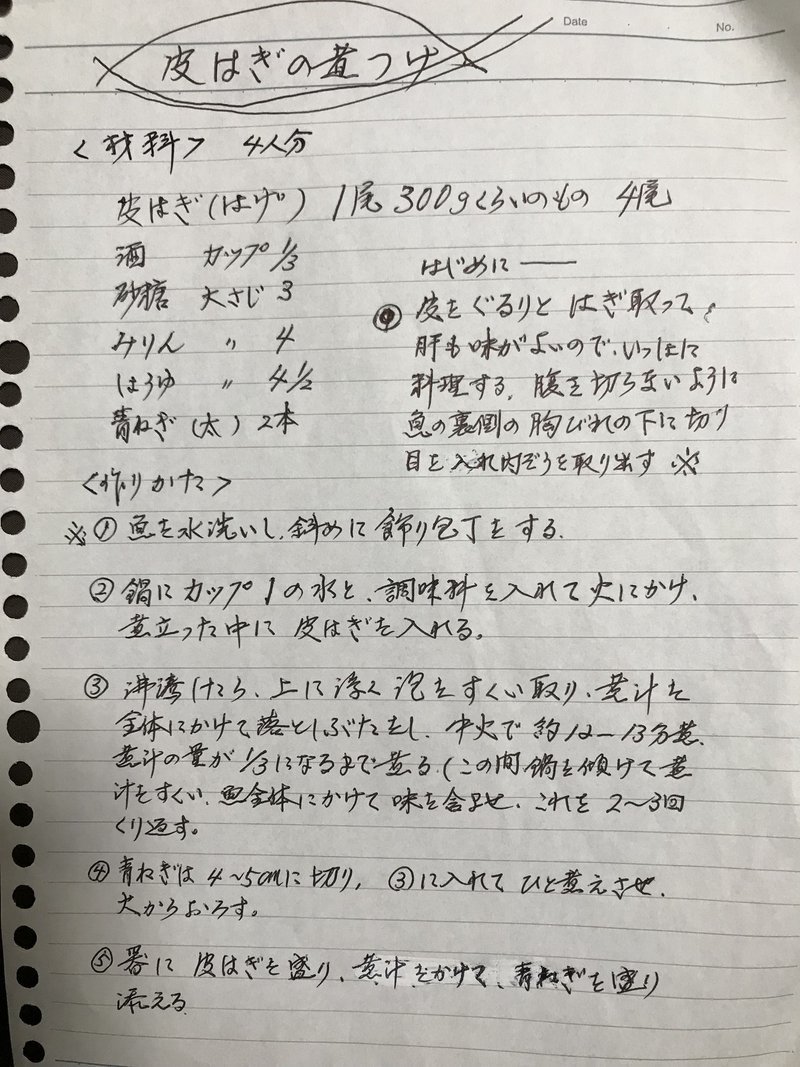 Date
No.
皮はぎの煮つけ
<材料> 4人分
皮はぎ(はげ) 1尾 300gくらいのもの 4尾
酒 カップ 1/3
砂糖 大さじ 3
みりん 〃 4
しょうゆ 〃 4 1/2
青ねぎ(太) 2本
はじめに——
皮をぐるりと はぎ取って
肝も味がよいので、いっしょに
料理する、腹を切らないように
魚の裏側の胸びれの下に切り
目を入れ内ぞうを取り出す ※
<作りかた>
※① 魚を水洗いし、斜めに飾り包丁をする.
② 鍋にカップ1の水と、調味料を入れて火にかけ、
煮立った中に 皮はぎを入れる。
③ 沸騰したら、上に浮く泡をすくい取り、煮汁を
全体にかけて落としぶたをし、中火で約12〜13分煮、
煮汁の量が1/3になるまで煮る、(この間鍋を傾けて煮
汁をすくい、魚全体にかけて味を含ませ、これを2〜3回
くり返す。
④ 青ねぎは4〜5cmに切り, ③に入れてひと煮えさせ、
火からおろす。
⑤ 器に 皮はぎを盛り、煮汁をかけて、青ねぎを盛り
添える